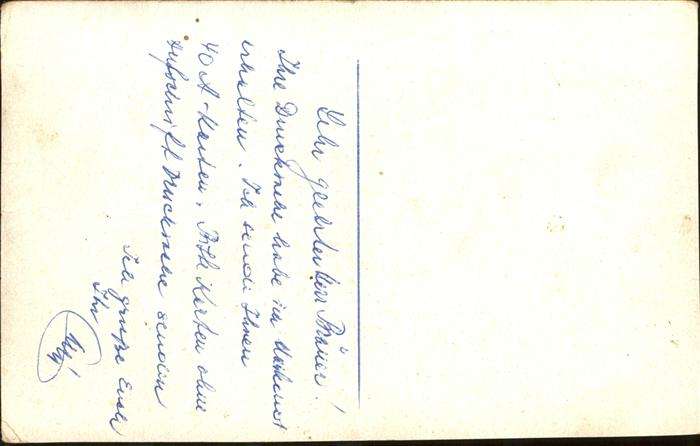 Sehr geehrter Herr
Ihre Drucksache habe ich
erhalten. Ich sende Ihnen
40 A-Karten. Bitte Karten ohne
Aufschrift Drucksache senden
Ich grüße Euch
Ihr